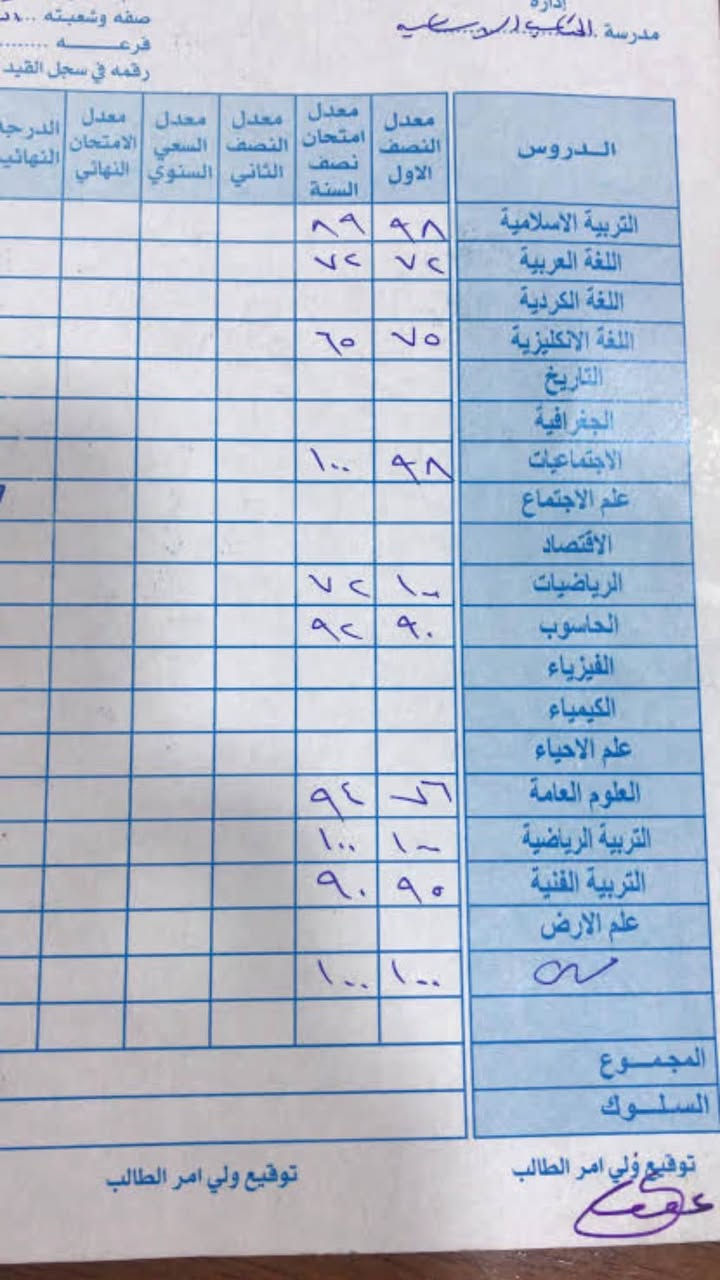 إدارة
مدرسة
صفه وشعبته
فرعـــــه
رقمه في سجل القيد
الـدروس | معدل النصف الاول | معدل امتحان نصف السنة | معدل النصف الثاني | معدل السعي السنوي | معدل الامتحان النهائي | الدرجة النهائية
التربية الاسلامية ٩٨ ٨٩
اللغة العربية ٧٢ ٧٢
اللغة الكردية
اللغة الانكليزية ٧٥ ٦٥
التاريخ
الجغرافية
الاجتماعيات ٩٨ ١٠٠
علم الاجتماع
الاقتصاد
الرياضيات ١٠٠ ٧٢
الحاسوب ٩٠ ٩٢
الفيزياء
الكيمياء
علم الاحياء
العلوم العامة ٧٦ ٩٤
التربية الرياضية ١٠٠ ١٠٠
التربية الفنية ٩٥ ٩٠
علم الارض
١٠٠ ١٠٠
المجمـــوع
السلـــوك
توقيع ولي امر الطالب
توقيع ولي امر الطالب